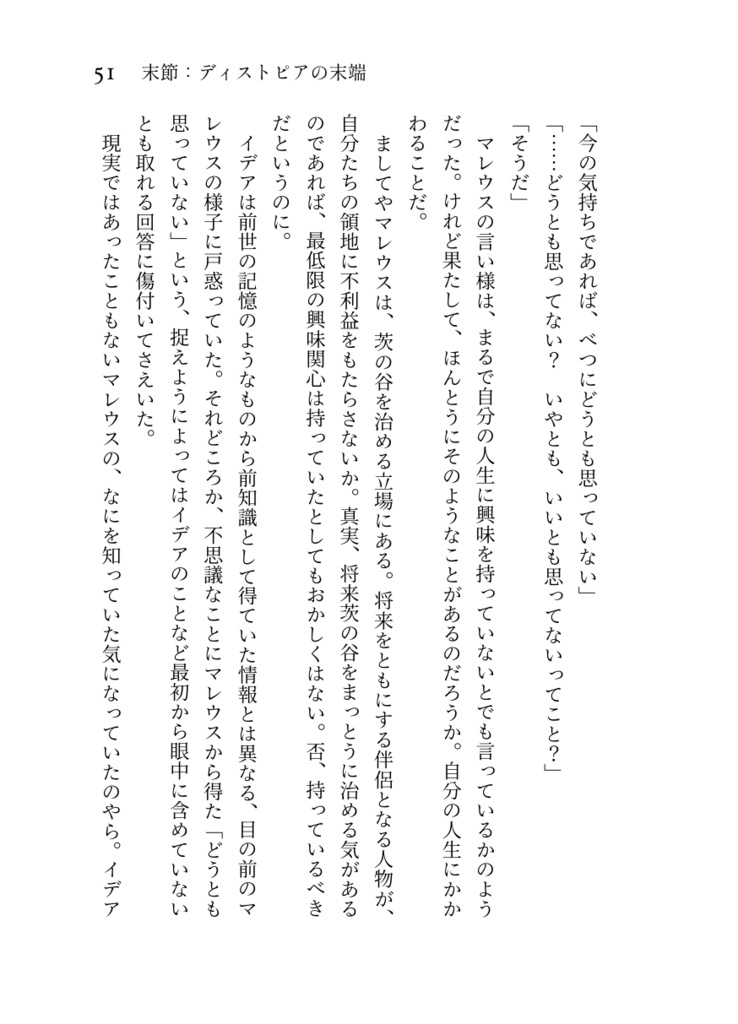 51 末節:ディストピアの末端
「今の気持ちであれば、べつにどうとも思っていない」
「……どうとも思ってない? いやとも、いいとも思ってないってこと?」
「そうだ」
マレウスの言い様は、まるで自分の人生に興味を持っていないとでも言っているかのよう
だった。けれど果たして、ほんとうにそのようなことがあるのだろうか。自分の人生にかか
わることだ。
ましてやマレウスは、茨の谷を治める立場にある。将来をともにする伴侶となる人物が、
自分たちの領地に不利益をもたらさないか。真実、将来茨の谷をまっとうに治める気がある
のであれば、最低限の興味関心は持っていたとしてもおかしくはない。否、持っているべき
だというのに。
イデアは前世の記憶のようなものから前知識として得ていた情報とは異なる、目の前のマ
レウスの様子に戸惑っていた。それどころか、不思議なことにマレウスから得た「どうとも
思っていない」という、捉えようによってはイデアのことなど最初から眼中に含めていない
とも取れる回答に傷付いてさえいた。
現実ではあったこともないマレウスの、なにを知っていた気になっていたのやら。イデア